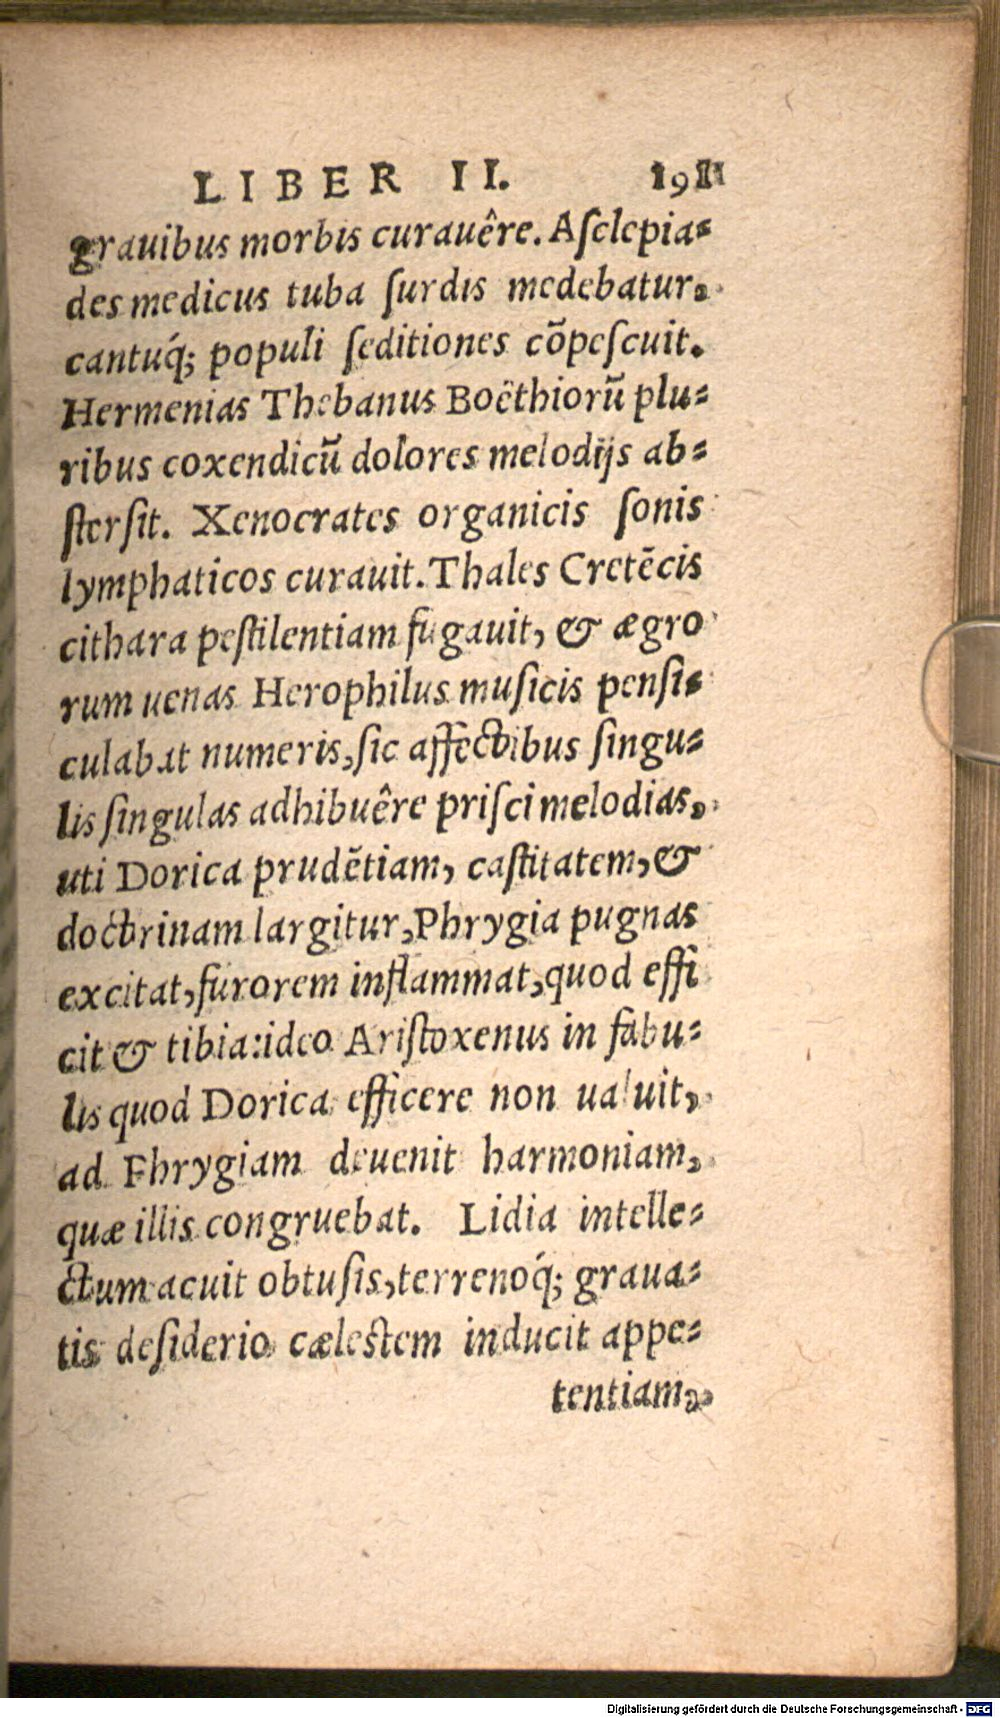 LIBER II. 191
grauibus morbis curauêre. Asclepia-
des medicus tuba surdis medebatur.
cantuq́; populi seditiones cõpescuit.
Hermenias Thebanus Boëthiorũ plu-
ribus coxendicũ dolores melodijs ab-
stersit. Xenocrates organicis sonis
lymphaticos curauit. Thales Cretẽcis
cithara pestilentiam fugauit, & ægro
rum uenas Herophilus musicis pensi-
culabat numeris, sic affectibus singu-
lis singulas adhibuêre prisci melodias,
uti Dorica prudẽtiam, castitatem, &
doctrinam largitur, Phrygia pugnas
excitat, furorem inflammat, quod effi
cit & tibia: ideo Aristoxenus in fabu-
lis quod Dorica efficere non ualuit,
ad Phrygiam deuenit harmoniam,
quæ illis congruebat. Lidia intelle-
ctum acuit obtusis, terrenoq́; graua-
tis desiderio cælestem inducit appe-
tentiam,
Digitalisierung gefördert durch die Deutsche Forschungsgemeinschaft - DFG